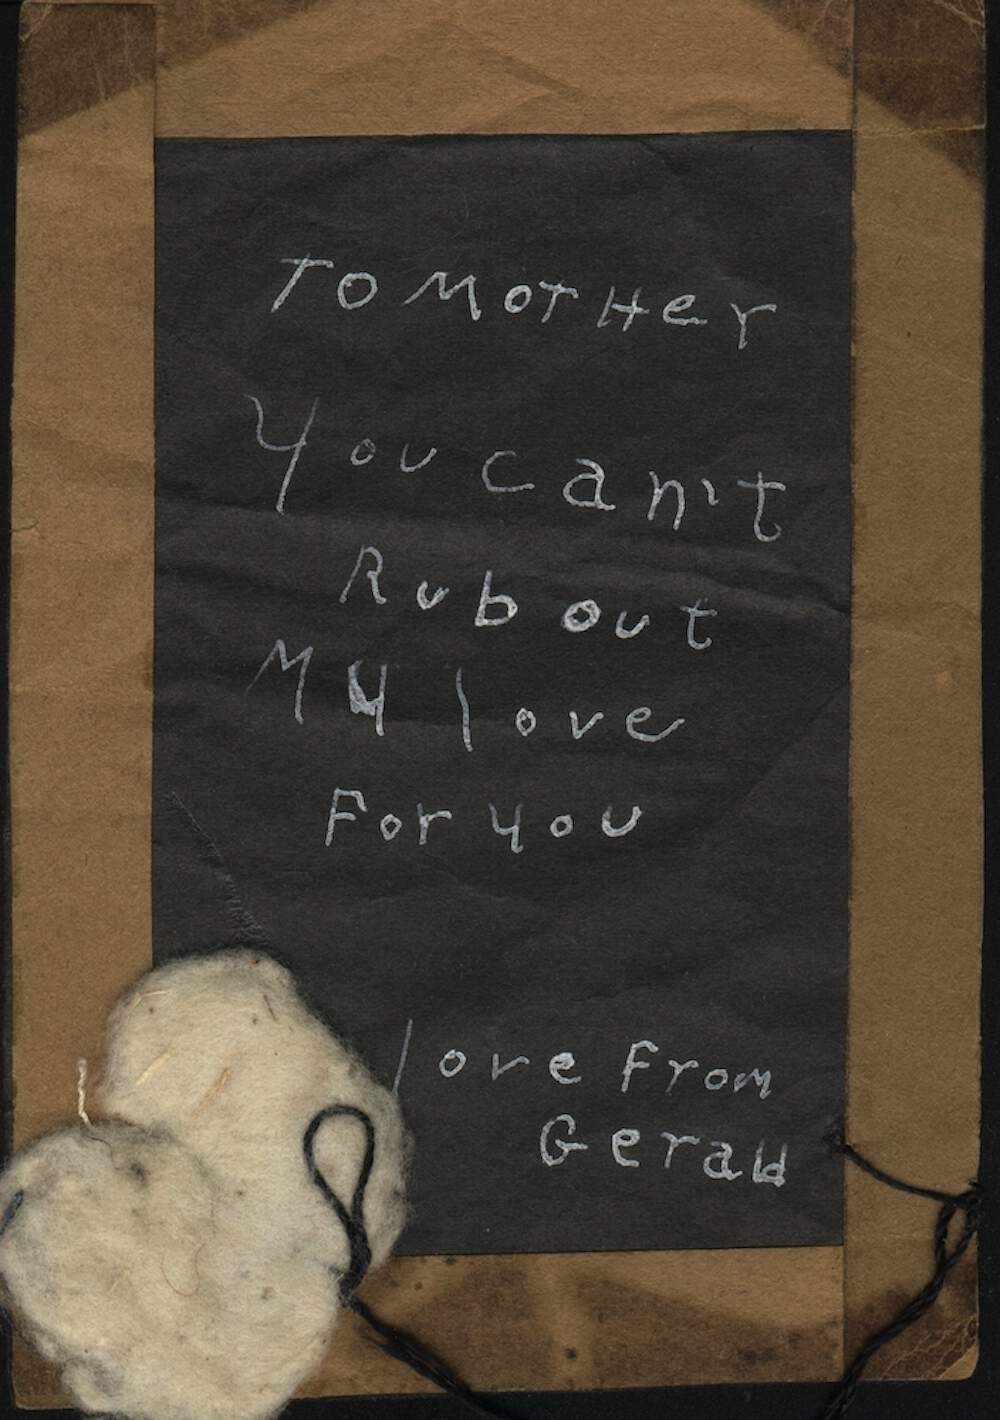 To MoTHer
You can't
Rub out
My love
For you
love From
Gerald